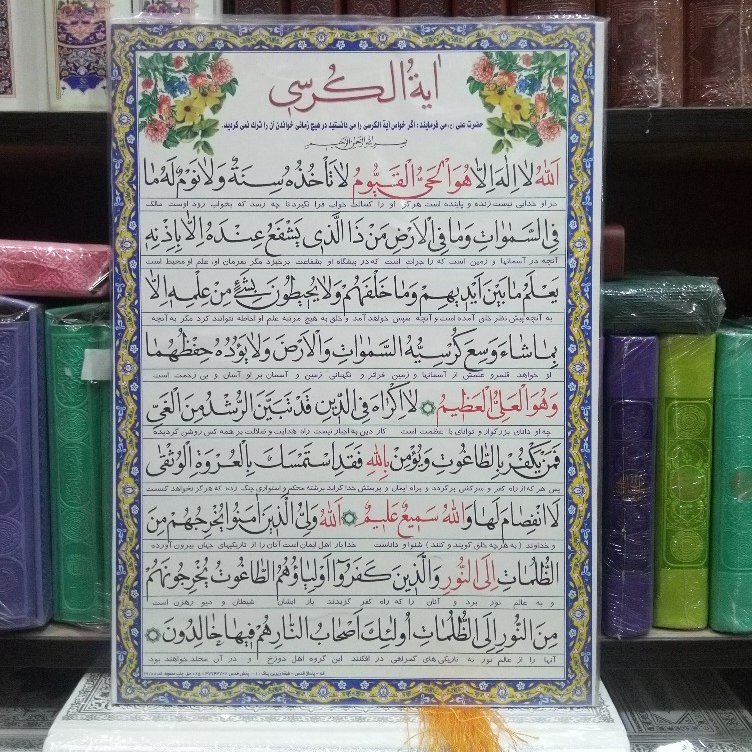 آیة الکرسی
حضرت علی (ع) می فرمایند: اگر خواص آیة الکرسی را می دانستید در هیچ زمانی خواندن آن را ترک نمی کردید.
بسم الله الرحمن الرحیم
اَللّٰهُ لا اِلٰهَ اِلّا هُوَ الْحَیُّ الْقَیُّومُ لا تَأخُذُهُ سِنَةٌ وَ لا نَوْمٌ لَهُ ما
جز او خدایی نیست زنده و پاینده است هرگز او را کسالت خواب فرا نگیرد تا چه رسد که بخواب رود اوست مالک
فِی السَّمٰواتِ وَ ما فِی الْاَرْضِ مَنْ ذَا الَّذی یَشْفَعُ عِنْدَهُ اِلّا بِاِذْنِهِ
آنچه در آسمانها و زمین است که را جرات است که در پیشگاه او بشفاعت برخیزد مگر بفرمان او، علم او محیط است
یَعْلَمُ ما بَیْنَ اَیْدیهِمْ وَ ما خَلْفَهُمْ وَ لا یُحیطُونَ بِشَیْءٍ مِنْ عِلْمِهِ اِلّا
به آنچه پیش نظر خلق آمده است و آنچه سپس خواهد آمد و خلق به هیچ مرتبه علم او احاطه نتوانند کرد مگر به آنچه
بِما شاءَ وَسِعَ کُرْسِیُّهُ السَّمٰواتِ وَ الْاَرْضَ وَ لا یَؤُدُهُ حِفْظُهُما
او خواهد قلمرو علمش از آسمانها و زمین فراتر و نگهبانی زمین و آسمان بر او آسان و بی زحمت است
وَ هُوَ الْعَلِیُّ الْعَظیمُ لا اِکْراهَ فِی الدّینِ قَدْ تَبَیَّنَ الرُّشْدُ مِنَ الْغَیِّ
چه او دانای بزرگوار و توانای با عظمت است کار دین به اجبار نیست راه هدایت و ضلالت بر همه کس روشن گردیده
فَمَنْ یَکْفُرْ بِالطّاغُوتِ وَ یُؤْمِنْ بِاللّٰهِ فَقَدِ اسْتَمْسَکَ بِالْعُرْوَةِ الْوُثْقٰی
پس هر که از راه کفر و سرکشی برگردد و براه ایمان و پرستش خدا گراید برشته محکم و استواری چنگ زده که هرگز نخواهد گسست
لَا انْفِصامَ لَها وَ اللّٰهُ سَمیعٌ عَلیمٌ اَللّٰهُ وَلِیُّ الَّذینَ آمَنُوا یُخْرِجُهُمْ مِنَ
و خداوند (به هر چه خلق گویند و کنند) شنوا و داناست خدا یار اهل ایمان است آنان را از تاریکیهای جهان بیرون آورده
الظُّلُماتِ اِلَی النُّورِ وَ الَّذینَ کَفَرُوا اَوْلِیاؤُهُمُ الطّاغُوتُ یُخْرِجُونَهُمْ
و به عالم نور برد و آنان را که راه کفر گزیدند یار ایشان شیطان و دیو رهزن است
مِنَ النُّورِ اِلَی الظُّلُماتِ اُولٰئِکَ اَصْحابُ النّارِ هُمْ فیها خالِدُونَ
آنها را از عالم نور به تاریکی های گمراهی در افکنند این گروه اهل دوزخ و در آن مخلد خواهند بود